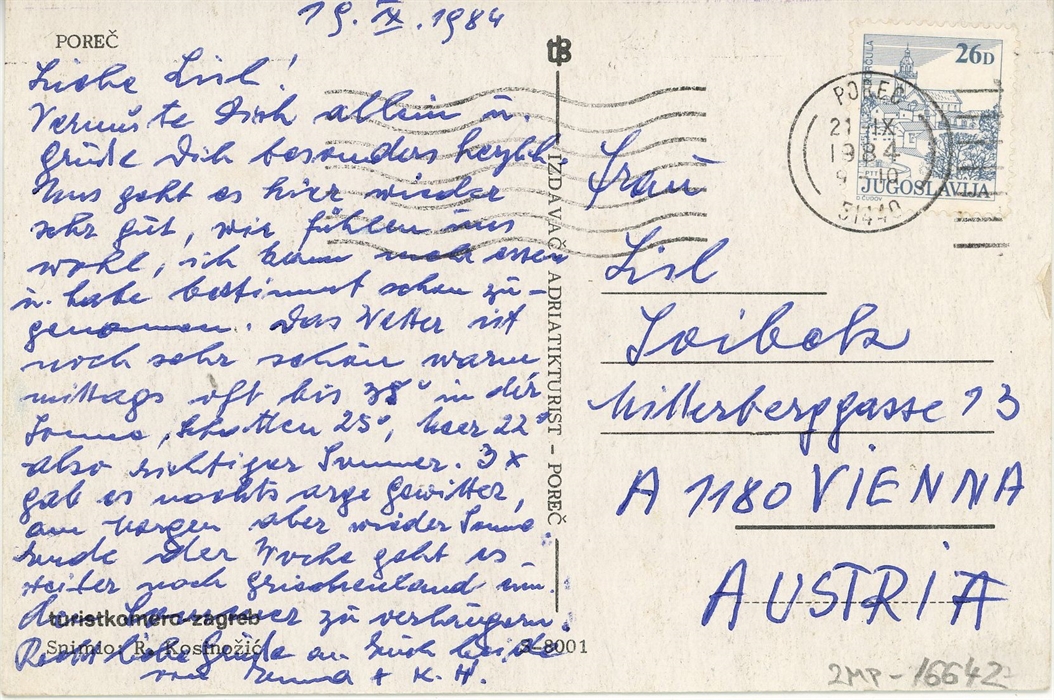 19. IX. 1984
POREČ
Liebe Lisl!
Vermute Dich allein u.
grüße Dich besonders herzlich.
Uns geht es hier wieder
sehr gut, wir fühlen uns
wohl, ich kann auch essen
u. habe bestimmt schon zu-
genommen. Das Wetter ist
noch sehr schön warm,
mittags oft bis 38° in der
Sonne, Schatten 25°, Meer 22°
also richtiger Sommer. 3x
gab es nachts arge Gewitter,
am Morgen aber wieder Sonne.
Ende der Woche geht es
weiter nach Griechenland um
den Sommer zu verlängern.
Recht liebe Grüße an Euch beide
von Emma + K. H.
turistkomerc zagreb
Snimio: R. Kosinožić
S-8001
IZDAVAČ ADRIATIKTURIST - POREČ
26D
KORČULA
PTT
JUGOSLAVIJA
POREČ
21 IX
1984
9 10
51440
Frau
Lisl
Soibek
Mitterberggasse 13
A 1180 VIENNA
AUSTRIA
2MP-16642-